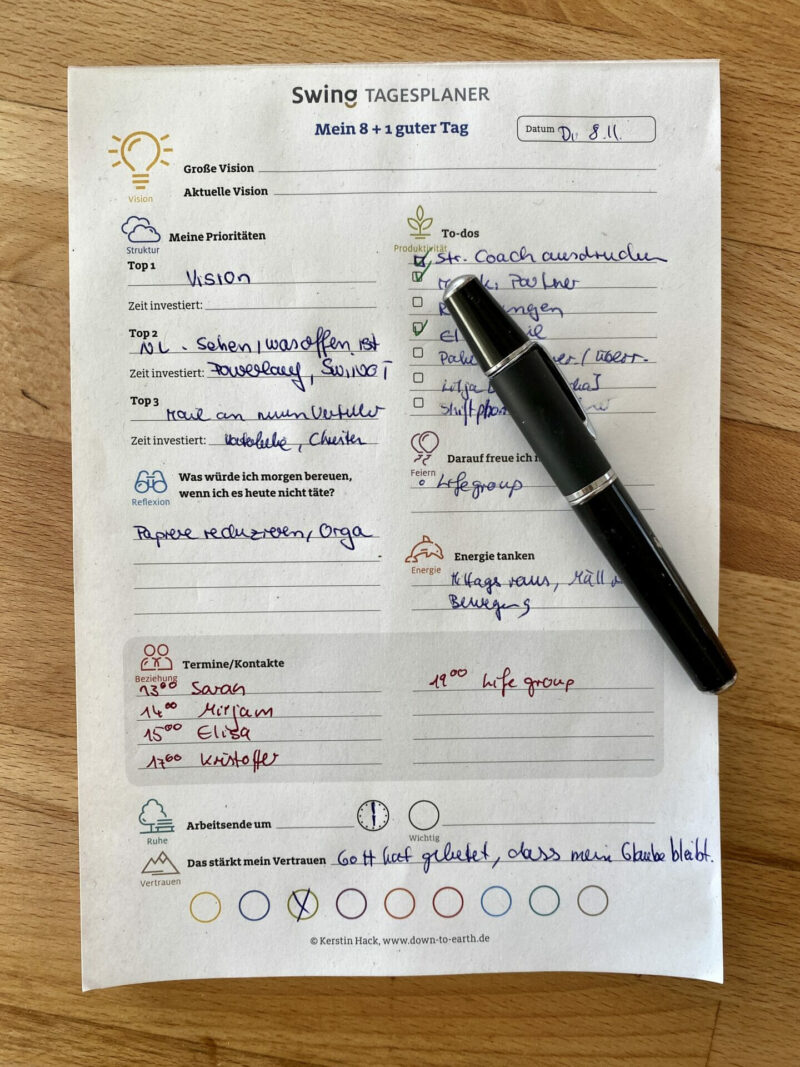 Swing TAGESPLANER
Mein 8 + 1 guter Tag
Datum Di 8.11.
Vision
Große Vision
Aktuelle Vision
Struktur
Meine Prioritäten
Top 1
Vision
Zeit investiert:
Top 2
NL - Sehen, was offen ist
Zeit investiert: Powerlauf, SWING T
Top 3
Mail an neuen Verteiler
Zeit investiert:
Reflexion
Was würde ich morgen bereuen,
wenn ich es heute nicht täte?
Papiere reduzieren, Orga
Produktivität
To-dos
Str. Coach ausdrucken
Partner
Feiern
Darauf freue ich
Lifegroup
Energie
Energie tanken
Mittags raus, Müll
Bewegung
Beziehung
Termine/Kontakte
13:00 Sarah
14:00 Mirjam
15:00 Elisa
17:00 Kristoffer
19:00 Lifegroup
Ruhe
Arbeitsende um
Wichtig
Vertrauen
Das stärkt mein Vertrauen Gott hat gebetet, dass mein Glaube bleibt.
© Kerstin Hack, www.down-to-earth.de